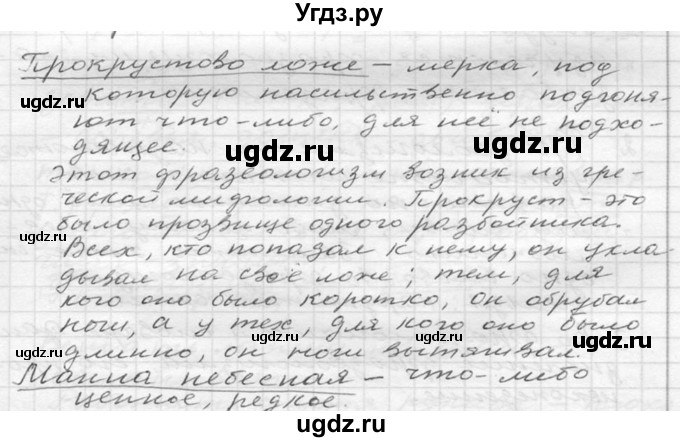 Угдз.ру
Прокрустово ложе – мерка, под
которую насильственно подгоня-
ют что-либо, для неё не подхо-
дящее.
Этот фразеологизм возник из гре-
ческой мифологии. Прокруст – это
было прозвище одного разбойника.
Всех, кто попадал к нему, он укла-
дывал на своё ложе; тем, для
кого оно было коротко, он обрубал
ноги, а у тех, для кого оно было
длинно, он ноги вытягивал.
Манна небесная – что-либо
ценное, редкое.
ugdz.ru
ugdz.ru
ugdz.ru
ugdz.ru
ugdz.ru
ugdz.ru
ugdz.ru
ugdz.ru
ugdz.ru
ugdz.ru
ugdz.ru
ugdz.ru